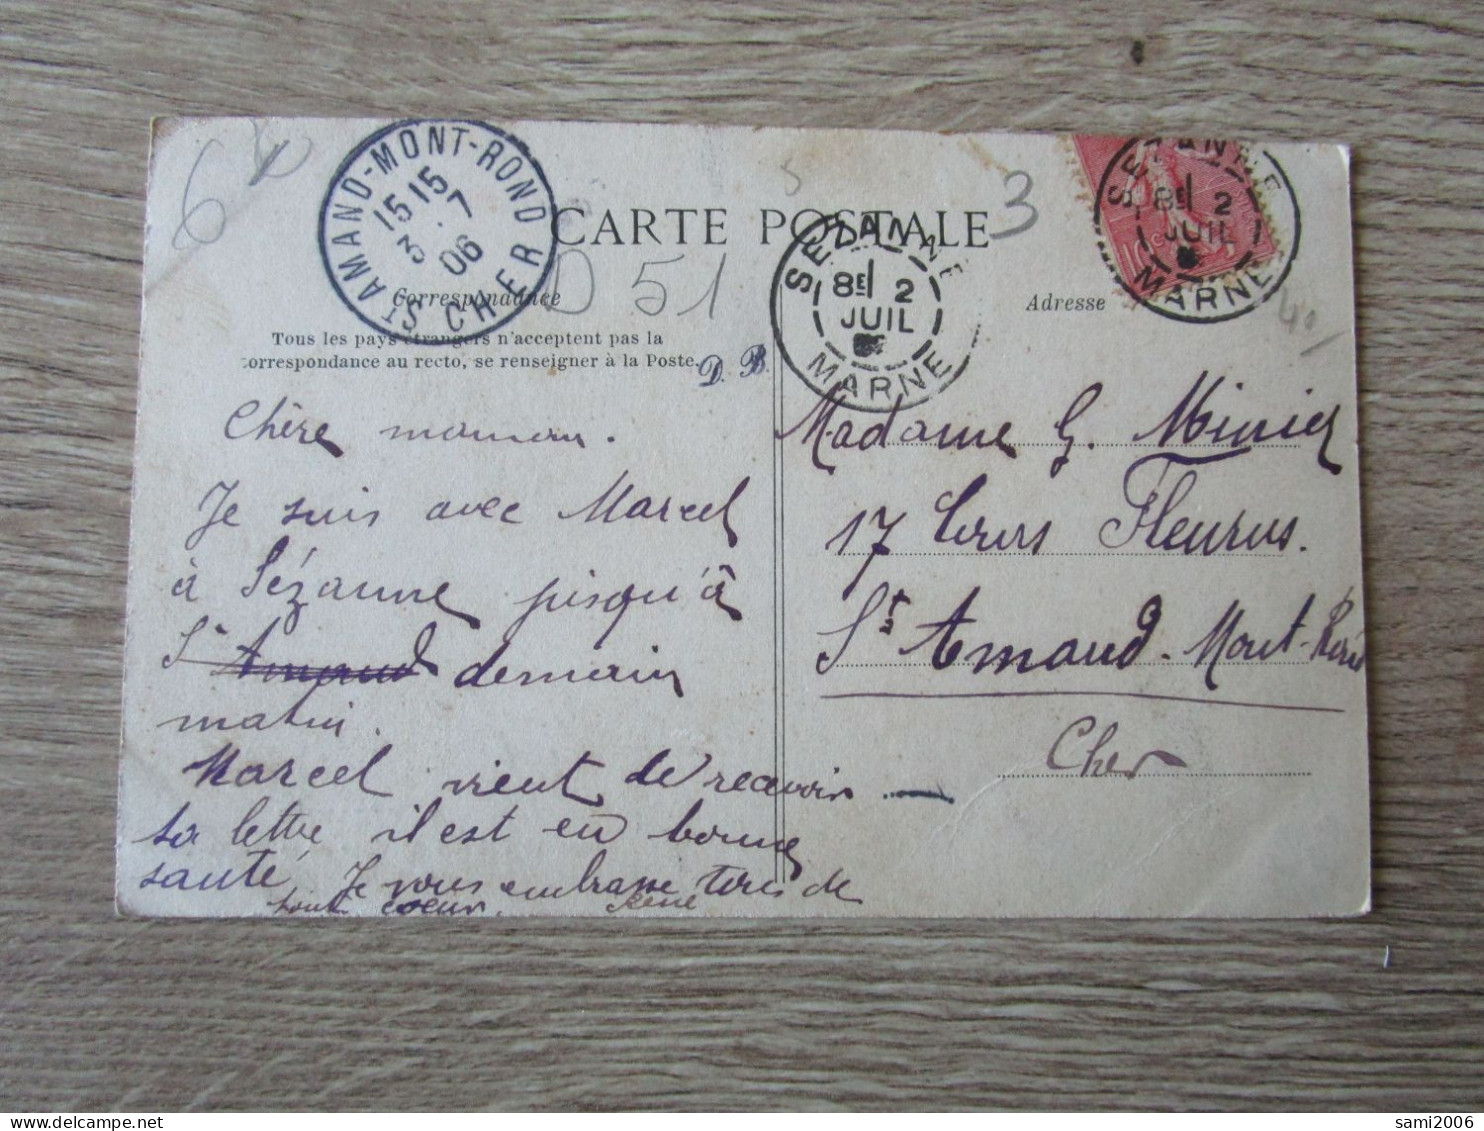 6
Sᵗ AMAND-MONT-ROND
15 15
3 . 7
06
CHER
CARTE POSTALE
3
5
SEZANNE
8E 2
JUIL
MARNE
SEZANNE
8E 2
JUIL
MARNE
10c
D 51
40
Correspondance
Adresse
Tous les pays étrangers n'acceptent pas la
correspondance au recto, se renseigner à la Poste.
D. B.
Chère maman.
Je suis avec Marcel
à Sézanne jusqu'à
Sᵗ Amand demain
matin.
Marcel vient de recevoir
sa lettre il est en bonne
santé. Je vous embrasse tous de
tout coeur. René
Madame G. Minier
17 Cours Fleurus.
Sᵗ Amand-Mont-Rond
Cher
sami2006